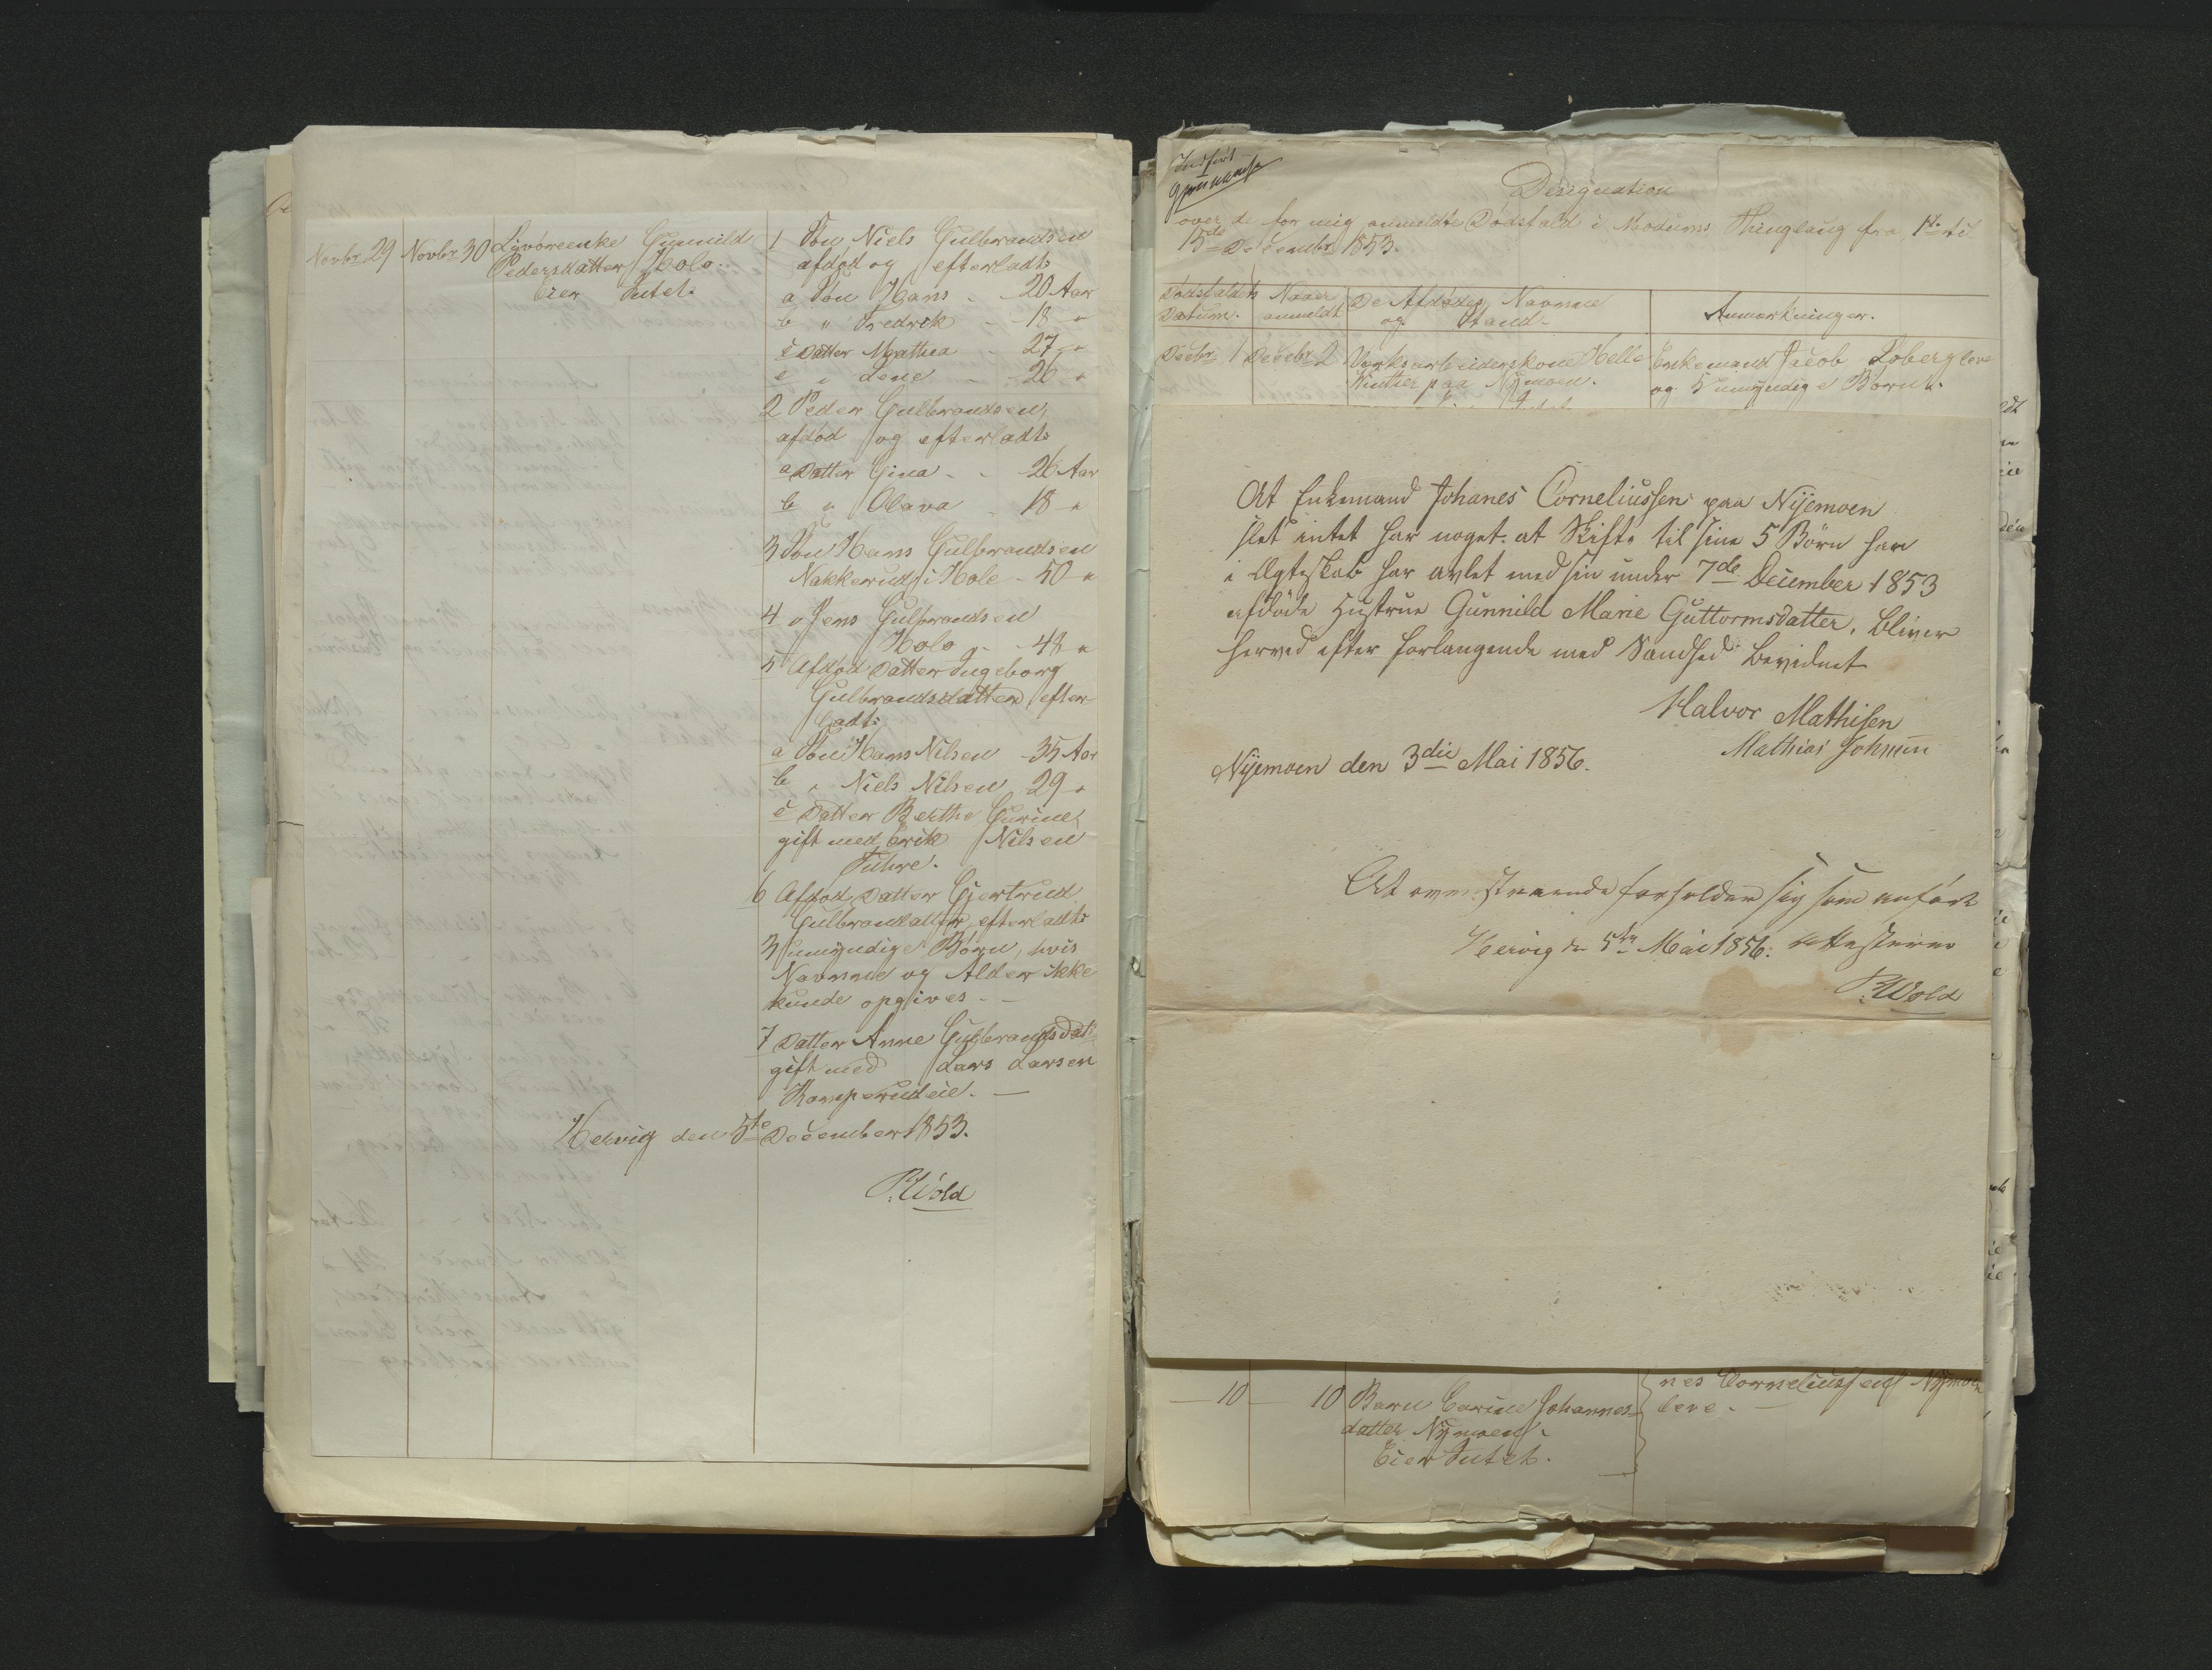 Novbr 29 Novbr 30 Livöreenke Gunnild
Pedersdatter Holo.
Eier Intet.
1 Søn Niels Gulbrandsen
afdød og efterladt:
a Søn Hans - 20 Aar
b " Fredrik - 18 "
c Datter Marthea - 27 "
d " Lene - 26 "
2 Peder Gulbrandsen,
afdød og efterladt:
a Datter Gina - - 26 Aar
b " Olava - 18 "
3 Søn Hans Gulbrandsen
Nakkerud i Hole - 50 "
4 " Jens Gulbrandsen
Holo - 48 "
5 Afdød Datter Ingeborg
Gulbrandsdatter efter-
ladt:
a Søn Hans Nilsen - 35 Aar
b " Niels Nilsen 29 "
c Datter Berthe Gurine,
gift med Erik Nilsen
6 Afdød Datter Gjertrud
Gulbrandsdatter, efterladt:
3 umyndige Børn, hvis
Navnne og Alder ikke
kunde opgives. -
7 Datter Anne Gulbrandsdatt:
gift med Lars Larsen
Komperudeie. -
Hervig den 5te December 1853.
P. Wold
Indført
Designation
over de for mig anmeldte Dødsfald i Modums Thinglaug fra 1ste til
15de Decembr 1853.
Dødsfaldets Datum.
Naar anmeldt
De Afdødes Navnne og Stand.
Anmærkninger.
Decbr 1 Decebr 2 Værksarbeiderskone Helle
Winther paa Nÿmoen.
Enkemand Jacob Loberg leve
og 5 umyndige Børn.
At Enkemand Johanes Corneliussen paa Nijemoen
slet intet har noget at Skifte til sine 5 Börn han
i Ægteskab har avlet med sin under 7de December 1853
afdöde Hustrue Gunnild Marie Guttormsdatter, bliver
herved efter forlangende med Sandhed bevidnet
Halvor Mathisen
Mathias Johnsen
Nijemoen den 3die Mai 1856.
At ovenstaaende forholder sig som anfört
Hervig den 5te Mai 1856. attesterer
P. Wold
- 10 - 10 Barn Carine Johannes-
datter Nÿmoen.
Eier Intet.
nes Corneliussen Nÿmoen
leve. -